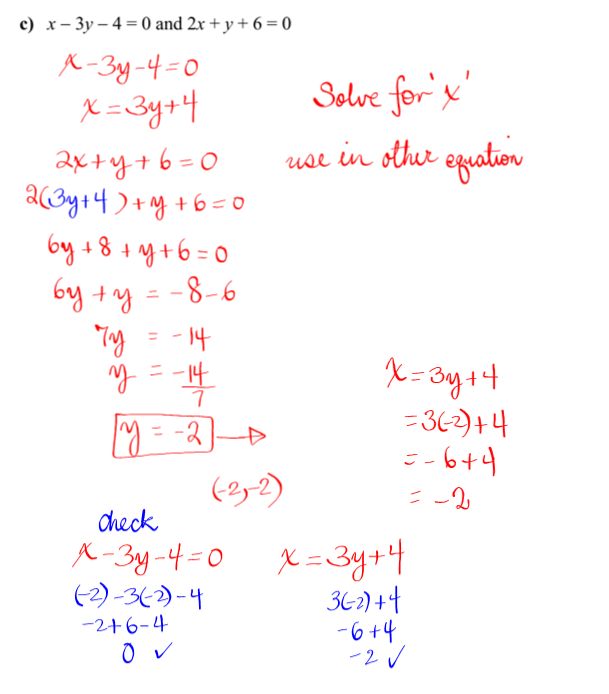 c) x – 3y – 4 = 0 and 2x + y + 6 = 0
x - 3y - 4 = 0
x = 3y + 4
Solve for 'x'
2x + y + 6 = 0
use in other equation
2(3y+4) + y + 6 = 0
6y + 8 + y + 6 = 0
6y + y = -8 - 6
7y = -14
y = -14/7
y = -2 →
x = 3y + 4
= 3(-2) + 4
= -6 + 4
= -2
(-2, -2)
check
x - 3y - 4 = 0
(-2) - 3(-2) - 4
-2 + 6 - 4
0 ✓
x = 3y + 4
3(-2) + 4
-6 + 4
-2 ✓